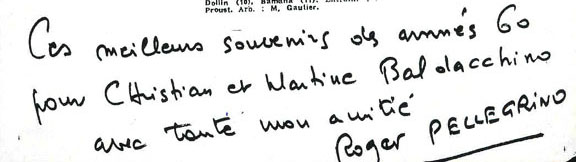 Dollin (10), Banana (11),
Proust. Arb. : M. Gautier.
Ces meilleurs souvenirs des années 60
pour Christian et Martine Baldacchino
avec toute mon amitié
Roger PELLEGRINO